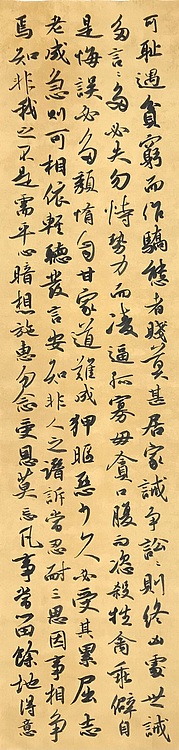 可耻遇貧窮而作驕態者賤莫甚居家誡争訟〻則終凶處世誡
多言〻多必失勿恃勢力而凌逼孤寡毋貪口腹而恣殺牲禽乖僻自
是悔誤必多頽惰自甘家道難成狎昵惡少久必受其累屈志
老成急則可相依輕聽發言安知非人之譖訴當忍耐三思因事相争
焉知非我之不是需平心暗想施惠勿念受恩莫忘凡事當留餘地得意